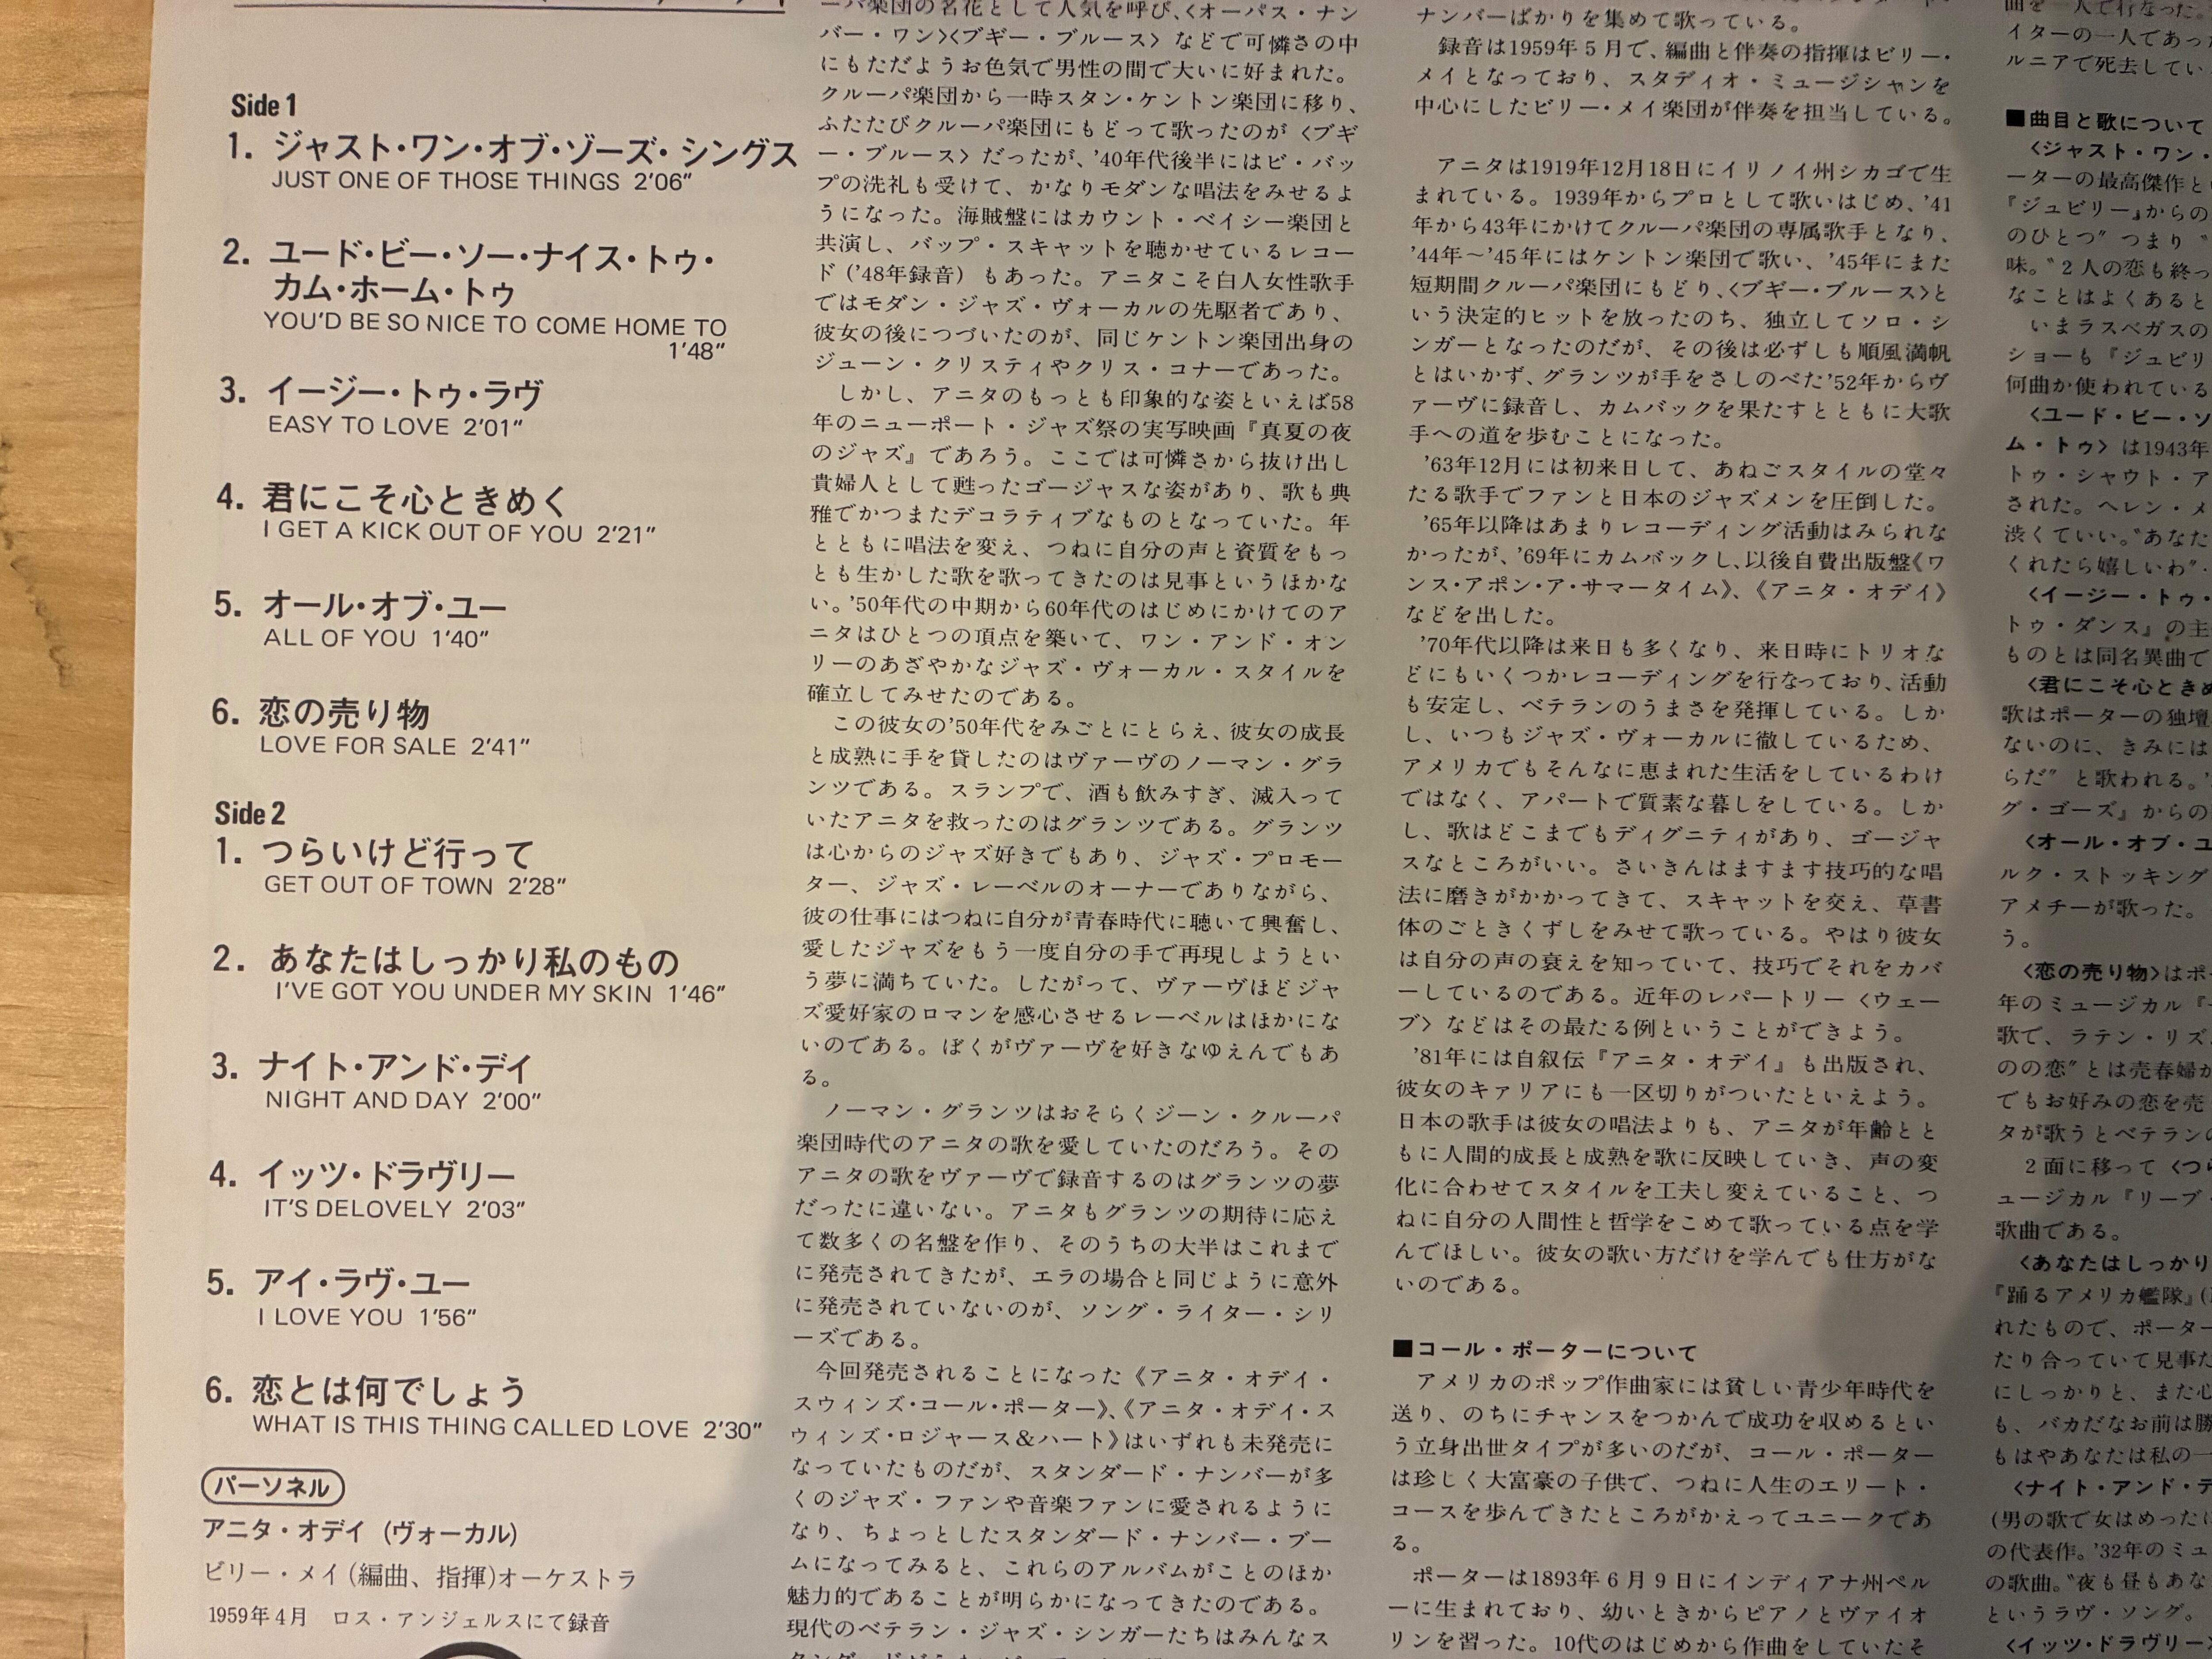 Side 1
1. ジャスト・ワン・オブ・ゾーズ・シングス
JUST ONE OF THOSE THINGS 2'06"
2. ユード・ビー・ソー・ナイス・トゥ・
カム・ホーム・トゥ
YOU'D BE SO NICE TO COME HOME TO
1'48"
3. イージー・トゥ・ラヴ
EASY TO LOVE 2'01"
4. 君にこそ心ときめく
I GET A KICK OUT OF YOU 2'21"
5. オール・オブ・ユー
ALL OF YOU 1'40"
6. 恋の売り物
LOVE FOR SALE 2'41"
Side 2
1. つらいけど行って
GET OUT OF TOWN 2'28"
2. あなたはしっかり私のもの
I'VE GOT YOU UNDER MY SKIN 1'46"
3. ナイト・アンド・デイ
NIGHT AND DAY 2'00"
4. イッツ・ドラヴリー
IT'S DELOVELY 2'03"
5. アイ・ラヴ・ユー
I LOVE YOU 1'56"
6. 恋とは何でしょう
WHAT IS THIS THING CALLED LOVE 2'30"
パーソネル
アニタ・オデイ (ヴォーカル)
ビリー・メイ(編曲、指揮)オーケストラ
1959年4月 ロス・アンジェルスにて録音
ーパ楽団の名花として人気を呼び、〈オーパス・ナン
バー・ワン〉〈ブギー・ブルース〉などで可憐さの中
にもただようお色気で男性の間で大いに好まれた。
クルーパ楽団から一時スタン・ケントン楽団に移り、
ふたたびクルーパ楽団にもどって歌ったのが〈ブギ
ー・ブルース〉だったが、'40年代後半にはビ・バッ
プの洗礼も受けて、かなりモダンな唱法をみせるよ
うになった。海賊盤にはカウント・ベイシー楽団と
共演し、バップ・スキャットを聴かせているレコー
ド('48年録音) もあった。アニタこそ白人女性歌手
ではモダン・ジャズ・ヴォーカルの先駆者であり、
彼女の後につづいたのが、同じケントン楽団出身の
ジューン・クリスティやクリス・コナーであった。
しかし、アニタのもっとも印象的な姿といえば58
年のニューポート・ジャズ祭の実写映画『真夏の夜
のジャズ』であろう。ここでは可憐さから抜け出し
貴婦人として甦ったゴージャスな姿があり、歌も典
雅でかつまたデコラティブなものとなっていた。年
とともに唱法を変え、つねに自分の声と資質をもっ
とも生かした歌を歌ってきたのは見事というほかな
い。'50年代の中期から60年代のはじめにかけてのア
ニタはひとつの頂点を築いて、ワン・アンド・オン
リーのあざやかなジャズ・ヴォーカル・スタイルを
確立してみせたのである。
この彼女の'50年代をみごとにとらえ、彼女の成長
と成熟に手を貸したのはヴァーヴのノーマン・グラ
ンツである。スランプで、酒も飲みすぎ、滅入って
いたアニタを救ったのはグランツである。グランツ
は心からのジャズ好きでもあり、ジャズ・プロモー
ター、ジャズ・レーベルのオーナーでありながら、
彼の仕事にはつねに自分が青春時代に聴いて興奮し、
愛したジャズをもう一度自分の手で再現しようとい
う夢に満ちていた。したがって、ヴァーヴほどジャ
ズ愛好家のロマンを感心させるレーベルはほかにな
いのである。ぼくがヴァーヴを好きなゆえんでもあ
る。
ノーマン・グランツはおそらくジーン・クルーパ
楽団時代のアニタの歌を愛していたのだろう。その
アニタの歌をヴァーヴで録音するのはグランツの夢
だったに違いない。アニタもグランツの期待に応え
て数多くの名盤を作り、そのうちの大半はこれまで
に発売されてきたが、エラの場合と同じように意外
に発売されていないのが、ソング・ライター・シリ
ーズである。
今回発売されることになった《アニタ・オデイ・
スウィンズ・コール・ポーター》、《アニタ・オデイ・ス
ウィンズ・ロジャース&ハート》はいずれも未発売に
なっていたものだが、スタンダード・ナンバーが多
くのジャズ・ファンや音楽ファンに愛されるように
なり、ちょっとしたスタンダード・ナンバー・ブー
ムになってみると、これらのアルバムがことのほか
魅力的であることが明らかになってきたのである。
現代のベテラン・ジャズ・シンガーたちはみんなス
ナンバーばかりを集めて歌っている。
録音は1959年5月で、編曲と伴奏の指揮はビリー・
メイとなっており、スタディオ・ミュージシャンを
中心にしたビリー・メイ楽団が伴奏を担当している。
アニタは1919年12月18日にイリノイ州シカゴで生
まれている。1939年からプロとして歌いはじめ、'41
年から43年にかけてクルーパ楽団の専属歌手となり、
'44年〜'45年にはケントン楽団で歌い、'45年にまた
短期間クルーパ楽団にもどり、〈ブギー・ブルース〉と
いう決定的ヒットを放ったのち、独立してソロ・シ
ンガーとなったのだが、その後は必ずしも順風満帆
とはいかず、グランツが手をさしのべた'52年からヴ
ァーヴに録音し、カムバックを果たすとともに大歌
手への道を歩むことになった。
'63年12月には初来日して、あねごスタイルの堂々
たる歌手でファンと日本のジャズメンを圧倒した。
'65年以降はあまりレコーディング活動はみられな
かったが、'69年にカムバックし、以後自費出版盤《ワ
ンス・アポン・ア・サマータイム》、《アニタ・オデイ》
などを出した。
'70年代以降は来日も多くなり、来日時にトリオな
どにもいくつかレコーディングを行なっており、活動
も安定し、ベテランのうまさを発揮している。しか
し、いつもジャズ・ヴォーカルに徹しているため、
アメリカでもそんなに恵まれた生活をしているわけ
ではなく、アパートで質素な暮しをしている。しか
し、歌はどこまでもディグニティがあり、ゴージャ
スなところがいい。さいきんはますます技巧的な唱
法に磨きがかかってきて、スキャットを交え、草書
体のごときくずしをみせて歌っている。やはり彼女
は自分の声の衰えを知っていて、技巧でそれをカバ
ーしているのである。近年のレパートリー〈ウェー
ブ〉などはその最たる例ということができよう。
'81年には自叙伝『アニタ・オデイ』も出版され、
彼女のキャリアにも一区切りがついたといえよう。
日本の歌手は彼女の唱法よりも、アニタが年齢とと
もに人間的成長と成熟を歌に反映していき、声の変
化に合わせてスタイルを工夫し変えていること、つ
ねに自分の人間性と哲学をこめて歌っている点を学
んでほしい。彼女の歌い方だけを学んでも仕方がな
いのである。
■コール・ポーターについて
アメリカのポップ作曲家には貧しい青少年時代を
送り、のちにチャンスをつかんで成功を収めるとい
う立身出世タイプが多いのだが、コール・ポーター
は珍しく大富豪の子供で、つねに人生のエリート・
コースを歩んできたところがかえってユニークであ
る。
ポーターは1893年6月9日にインディアナ州ペル
ーに生まれており、幼いときからピアノとヴァイオ
リンを習った。10代のはじめから作曲をしていたそ
曲を一人で行なった。
イターの一人であった
ルニアで死去してい
■曲目と歌について
〈ジャスト・ワン・
ーターの最高傑作と
『ジュビリー』からの
のひとつ〟つまり〝
味。〝2人の恋も終っ
なことはよくあると
いまラスベガスの
ショーも『ジュビリ
何曲か使われている
〈ユード・ビー・ソ
ム・トゥ〉は1943年
トゥ・シャウト・ア
された。ヘレン・メ
渋くていい。〝あなた
くれたら嬉しいわ〟
〈イージー・トゥ・
トゥ・ダンス』の主
ものとは同名異曲で
〈君にこそ心ときめ
歌はポーターの独壇
ないのに、きみには
らだ〟と歌われる。'
グ・ゴーズ』からの
〈オール・オブ・ユ
ルク・ストッキング
アメチーが歌った。
う。
〈恋の売り物〉はポ
年のミュージカル『
歌で、ラテン・リズ
のの恋〟とは売春婦が
でもお好みの恋を売
タが歌うとベテランの
2面に移って〈つら
ュージカル『リーブ
歌曲である。
〈あなたはしっかり
『踊るアメリカ艦隊』(
れたもので、ポーター
たり合っていて見事だ
にしっかりと、また心
も、バカだなお前は勝
もはやあなたは私の一
〈ナイト・アンド・デ
(男の歌で女はめったに
の代表作。'32年のミュ
の歌曲。〝夜も昼もあな
というラヴ・ソング。
〈イッツ・ドラヴリー〉